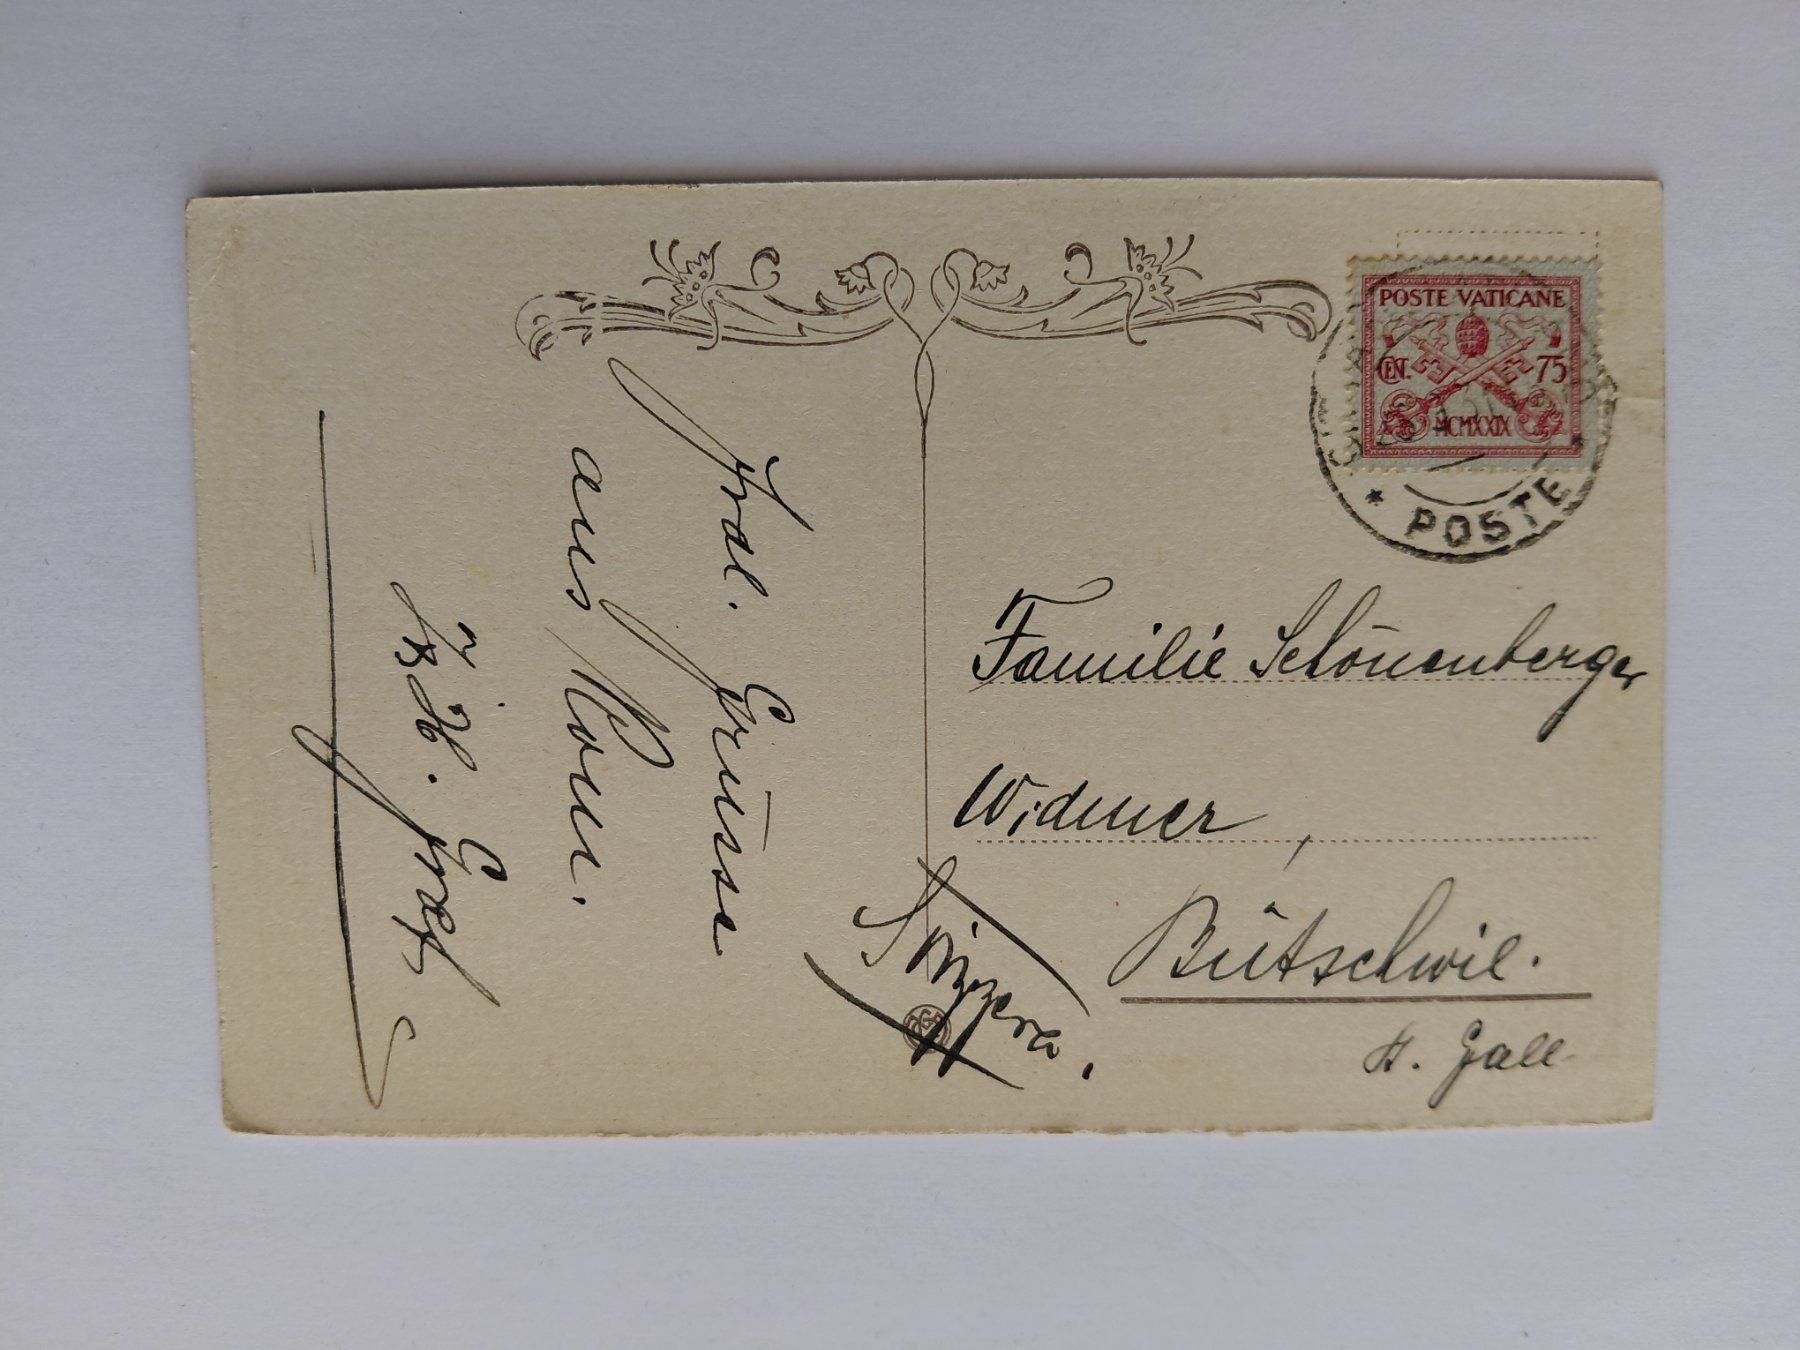 Frdl. Grüsse
aus Rom.
Graf
POSTE VATICANE
CENT. 75
MCMXXIX
POSTE
Familie Schönenberger
Widmer,
Bütschwil.
St. Gall
Svizzera.